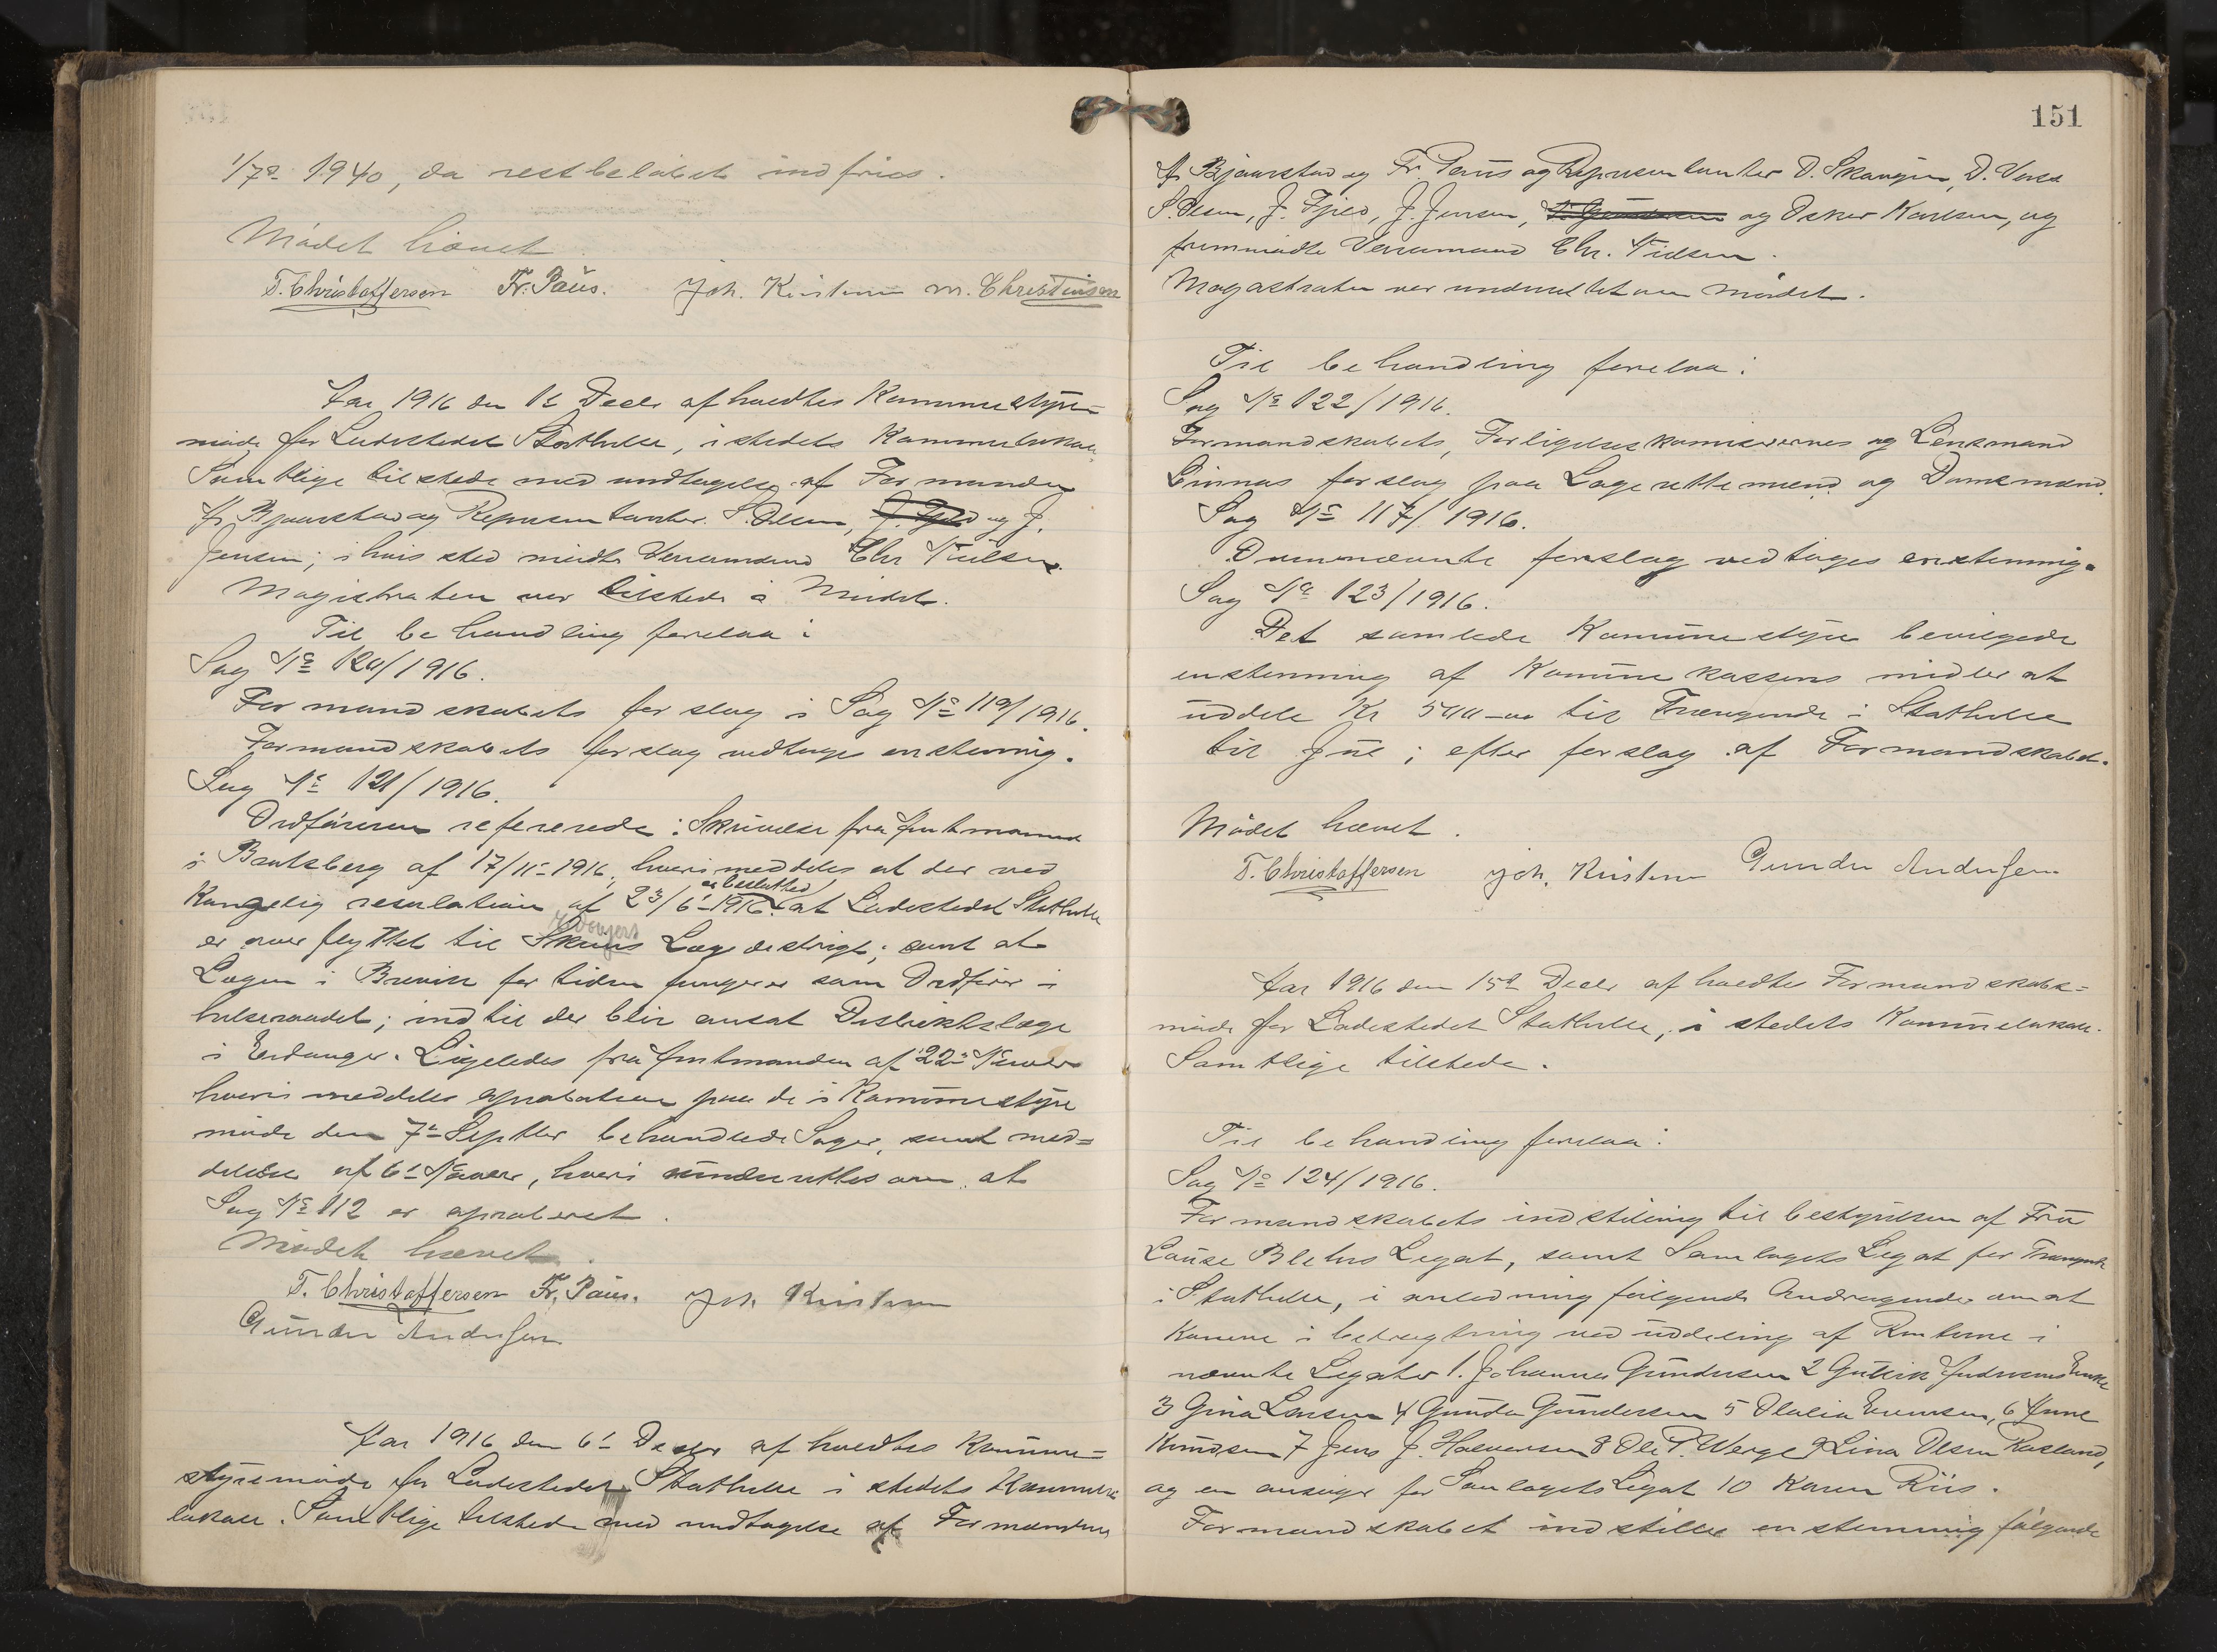 1/7º 1940, da restbeløbet indfries.
Mødet hævet.
T. Christoffersen Fr. Paus. Joh. Kristensen M. Christensen
Aar 1916 den 1º Decbr afholdtes Kommunestyre=
møde for Ladestedet Stathelle, i stedets Kommunelokale.
Samtlige tilstede med undtagelse af Formænden
A. Bjaarstad og Repræsentanter. S. Olsen, J. Fjeld og J.
Jensen; i hvis sted mødte Varamænd Chr Nielsen.
Magistraten var tilstede i Mødet.
Til behandling forelaa:
Sag Nº 120/1916.
Formandskabets forslag i Sag Nº 119/1916.
Formandskabets forslag vedtoges enstemmig.
Sag Nº 121/1916.
Ordføreren refererede: Skrivelse fra Amtmanden
i Bratsberg af 17/11-1916, hvori meddeles at der ved
er beslutted
Kongelig resolution af 23/6-1916. at Ladestedet Stathelle
er overflyttet til Skiens Lægedestrigt; samt at
Lægen i Brevik for tiden fungerer som Ordfører i
helseraadet; indtil der blir ansat Distriktslæge
i Eidanger. Ligeledes fra Amtmanden af 22º Novbr
hvori meddeles aprobation paa de i Kommunestyre
møde den 7º Septbr behandlede Sager, samt med=
delelse af 6º Novbr, hvori underrettes om at
Sag Nº 112 er aproberet.
Mødet hævet.
T. Christoffersen Fr. Paus. Joh. Kristensen
Gunder Andersen
Aar 1916 den 6º Decbr afholdtes Kommune=
styremøde for Ladestedet Stathelle i stedets Kommune
lokale. Samtlige tilstede med undtagelse af Formændene
151
A. Bjaarstad og Fr. Paus og Repræsentanter O. Skaugen, D.
S. Olsen, J. Fjeld, J. Jensen, og Oskar Karlsen, og
fremmødte Varamand Chr. Nielsen.
Magastraten var underrettet om Mødet.
Til behandling forelaa:
Sag Nº 122/1916.
Formandskabets, Forligelseskomiserernes og Lensmand
Linnes forslag paa Lagrettemænd og Domsmænd.
Sag Nº 117/1916.
Ovennævnte forslag vedtoges enstemmig.
Sag Nº 123/1916.
Det samlede Kommunestyre bevilgede
enstemmig af Kommunekassens midler at
uddele Kr 500-00 til Trængende i Stathelle
til Jul; efter forslag af Formandskabet.
Mødet hævet.
T. Christoffersen Joh. Kristensen Gunder Andersen
Aar 1916 den 15º Decbr afholdtes Formandskabs=
møde for Ladestedet Stathelle, i stedets Kommunelokale.
Samtlige tilstede.
Til behandling forelaa:
Sag Nº 124/1916.
Formandskabets indstilling til bestyrelsen af Fru
Louise Blehrs Legat, samt Samlagets Legat for Trængende
i Stathelle, i anledning følgende Andragender om at
komme i betragtning ved uddeling af Renterne i
nævnte Legater 1. Johannes Gundersen 2 Gulleik Andersens Enke
3 Gina Larsen 4 Gunda Gundersen 5 Olalia Evensen, 6 Anne
Knudsen 7 Jens J. Halvorsen 8 Ole P. Werge 9 Lina Olsen Rasland,
og en ansøger for Samlagets Legat 10 Karen Riis.
Formandskabet indstiller enstemmig følgende